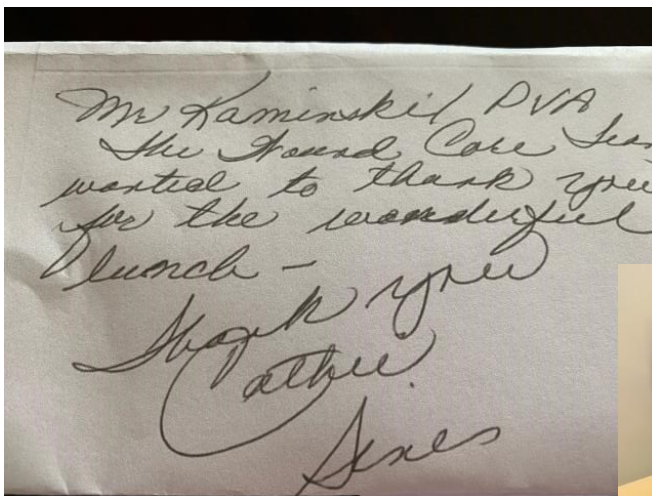 Mr Kaminski / PVA
The Wound Care Team
wanted to thank you
for the wonderful
lunch –
Thank you
Cathie